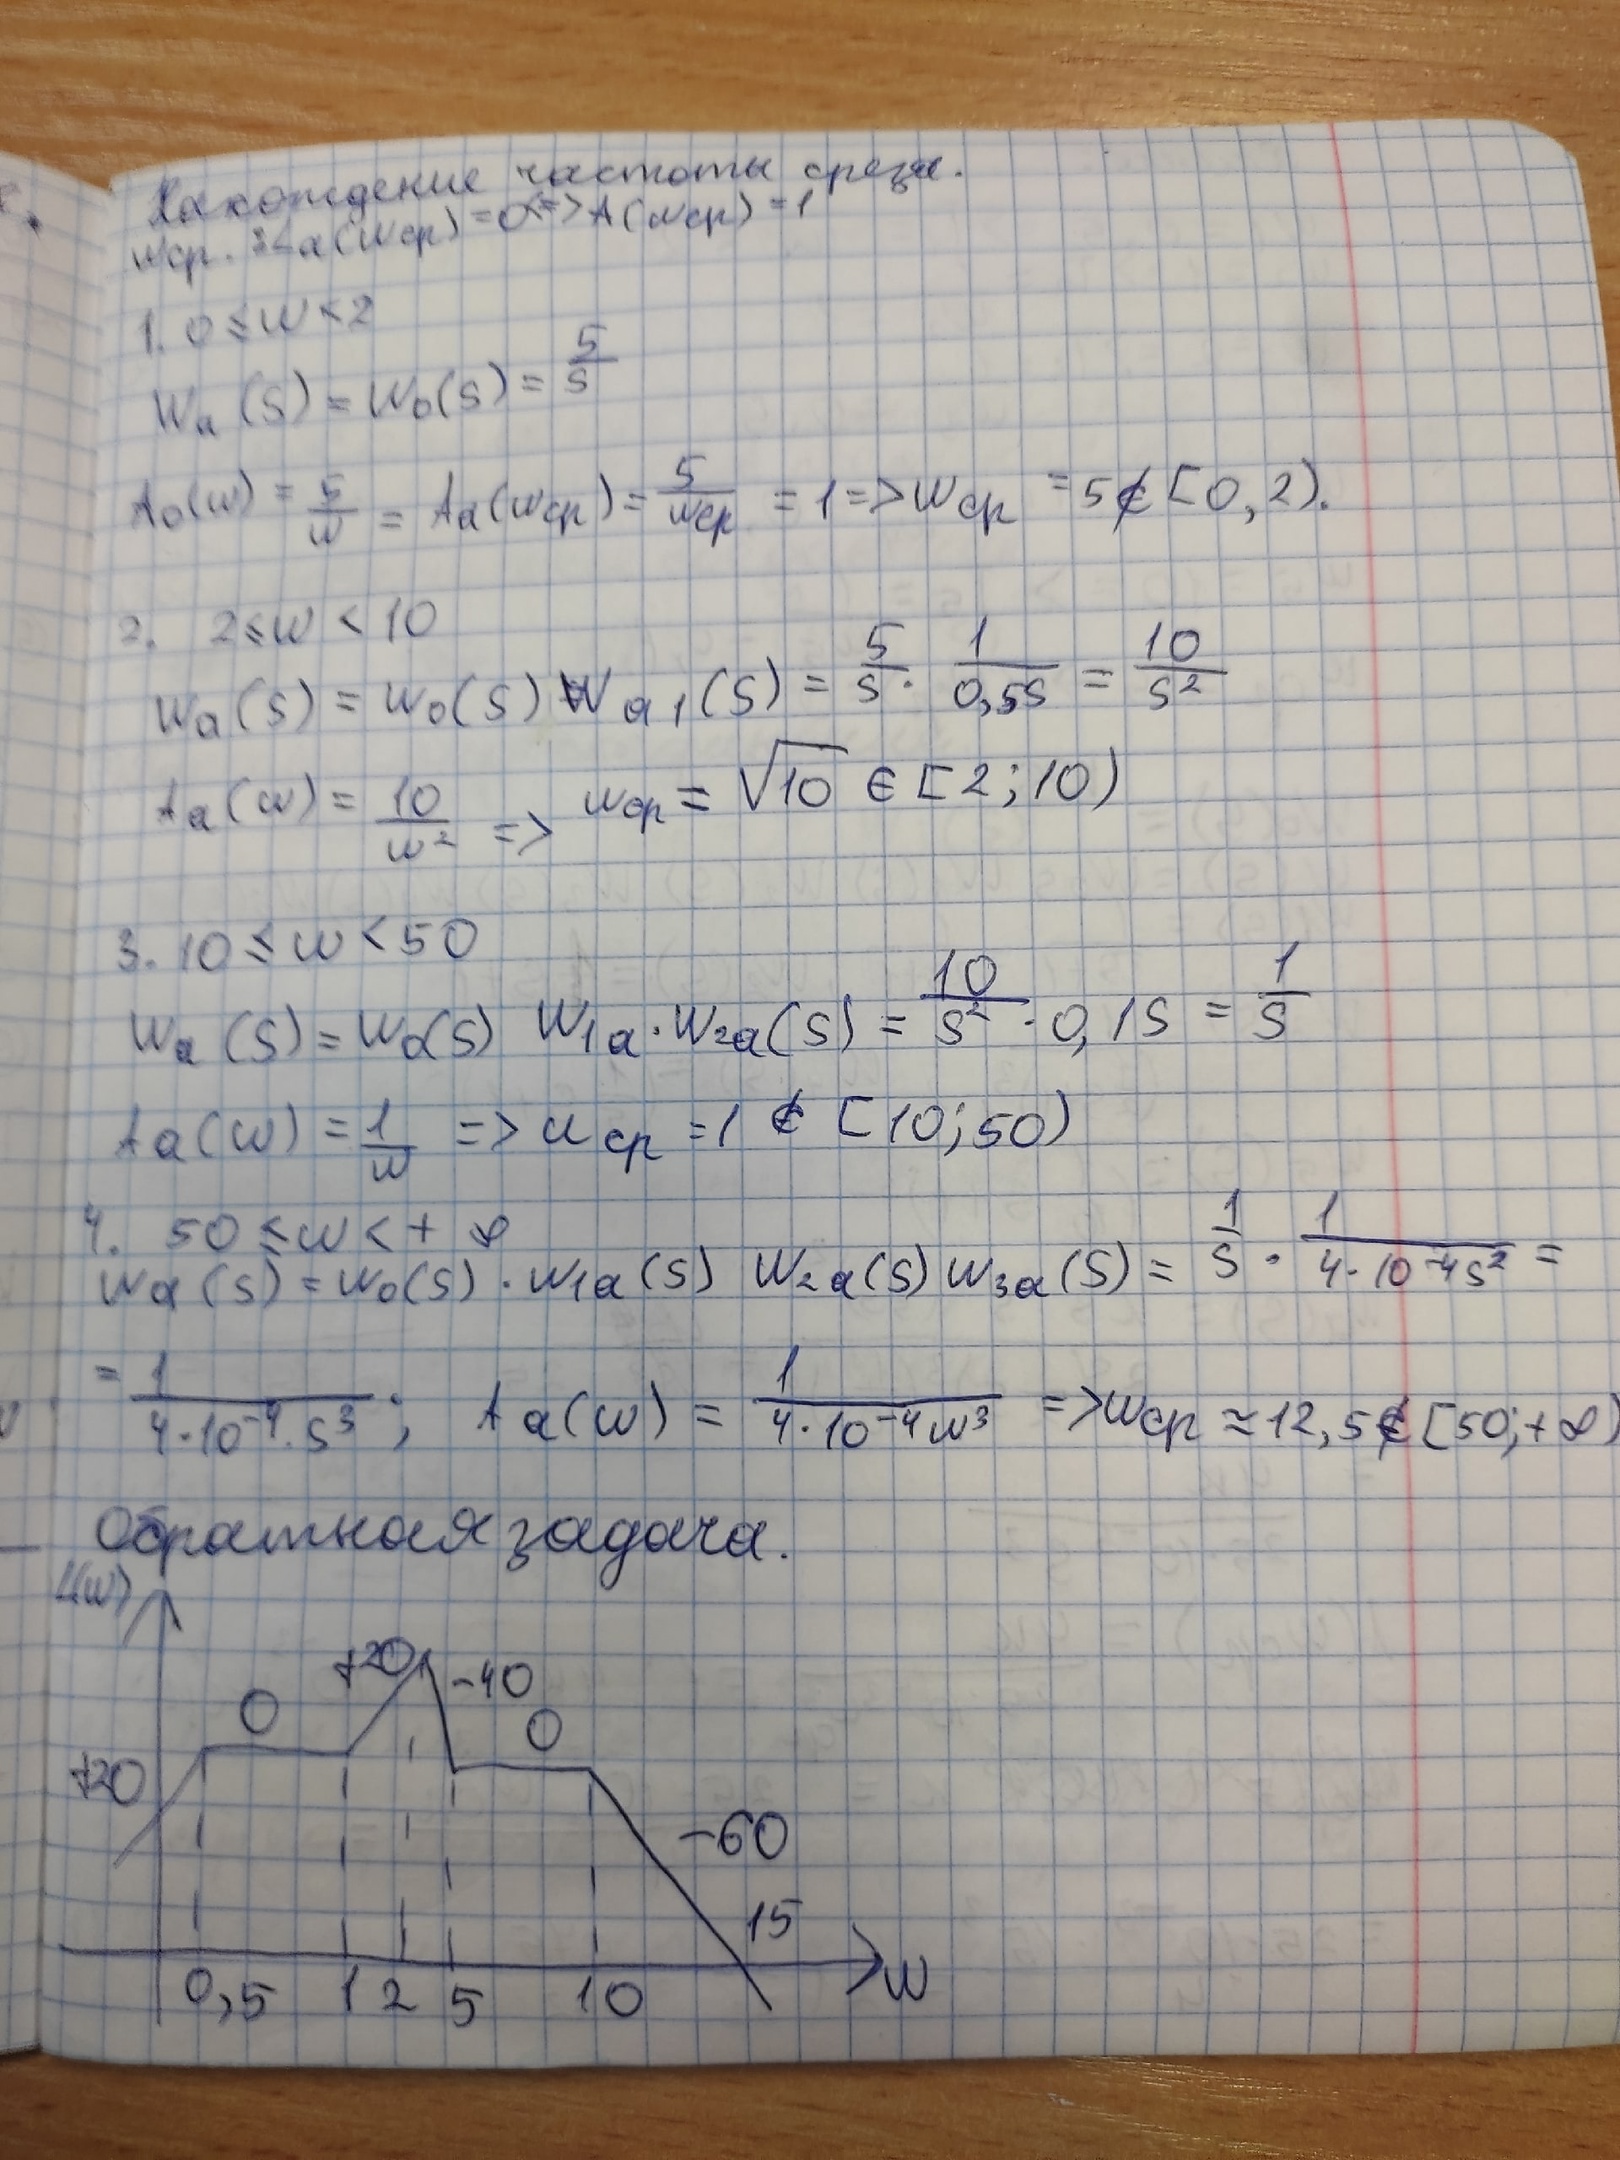 Нахождение частоты среза.
wср. : La(wср) = 0 <=> A(wср) = 1
1. 0 ≤ w < 2
Wa(s) = W0(s) = 5/s
A0(w) = 5/w = Aa(wср) = 5/wср = 1 => wср = 5 ∉ [0, 2).
2. 2 ≤ w < 10
Wa(s) = W0(s) Wa1(s) = 5/s · 1/0,5s = 10/s²
Aa(w) = 10/w² => wср = √10 ∈ [2; 10)
3. 10 ≤ w < 50
Wa(s) = W0(s) W1a · W2a(s) = 10/s² · 0,1s = 1/s
Aa(w) = 1/w => wср = 1 ∉ [10; 50)
4. 50 ≤ w < +∞
Wa(s) = W0(s) · W1a(s) W2a(s) W3a(s) = 1/s · 1/4·10⁻⁴s² =
= 1/4·10⁻⁴·s³ ; Aa(w) = 1/4·10⁻⁴w³ => wср ≈ 12,5 ∉ [50; +∞)
Обратная задача.
L(w)
+20 -40
0 0
+20
-60
15
0,5 1 2 5 10 w